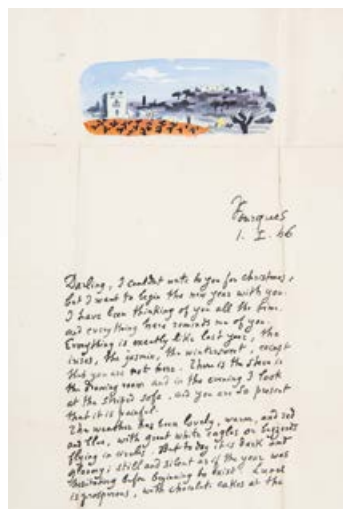 Fourques
1. I. 66
Darling, I couldnt write to you for christmas,
but I want to begin the new year with you.
I have been thinking of you all the time.
and everything here reminds me of you.
Everything is exactly like last year, the
irises, the jasmin, the wintersweet, except
that you are not here. There is the stove in
the drawing room and in the evening I look
at the striped sofa, and you are so present
that it is painful.
The weather has been lovely, warm, and red
and blue, with great white eagles or buzzards
flying in circles. But to day it is dark and
gloomy; still and silent as if the year was
hesitating before beginning to exist. Lunel
is prosperous, with chocolate cakes at the